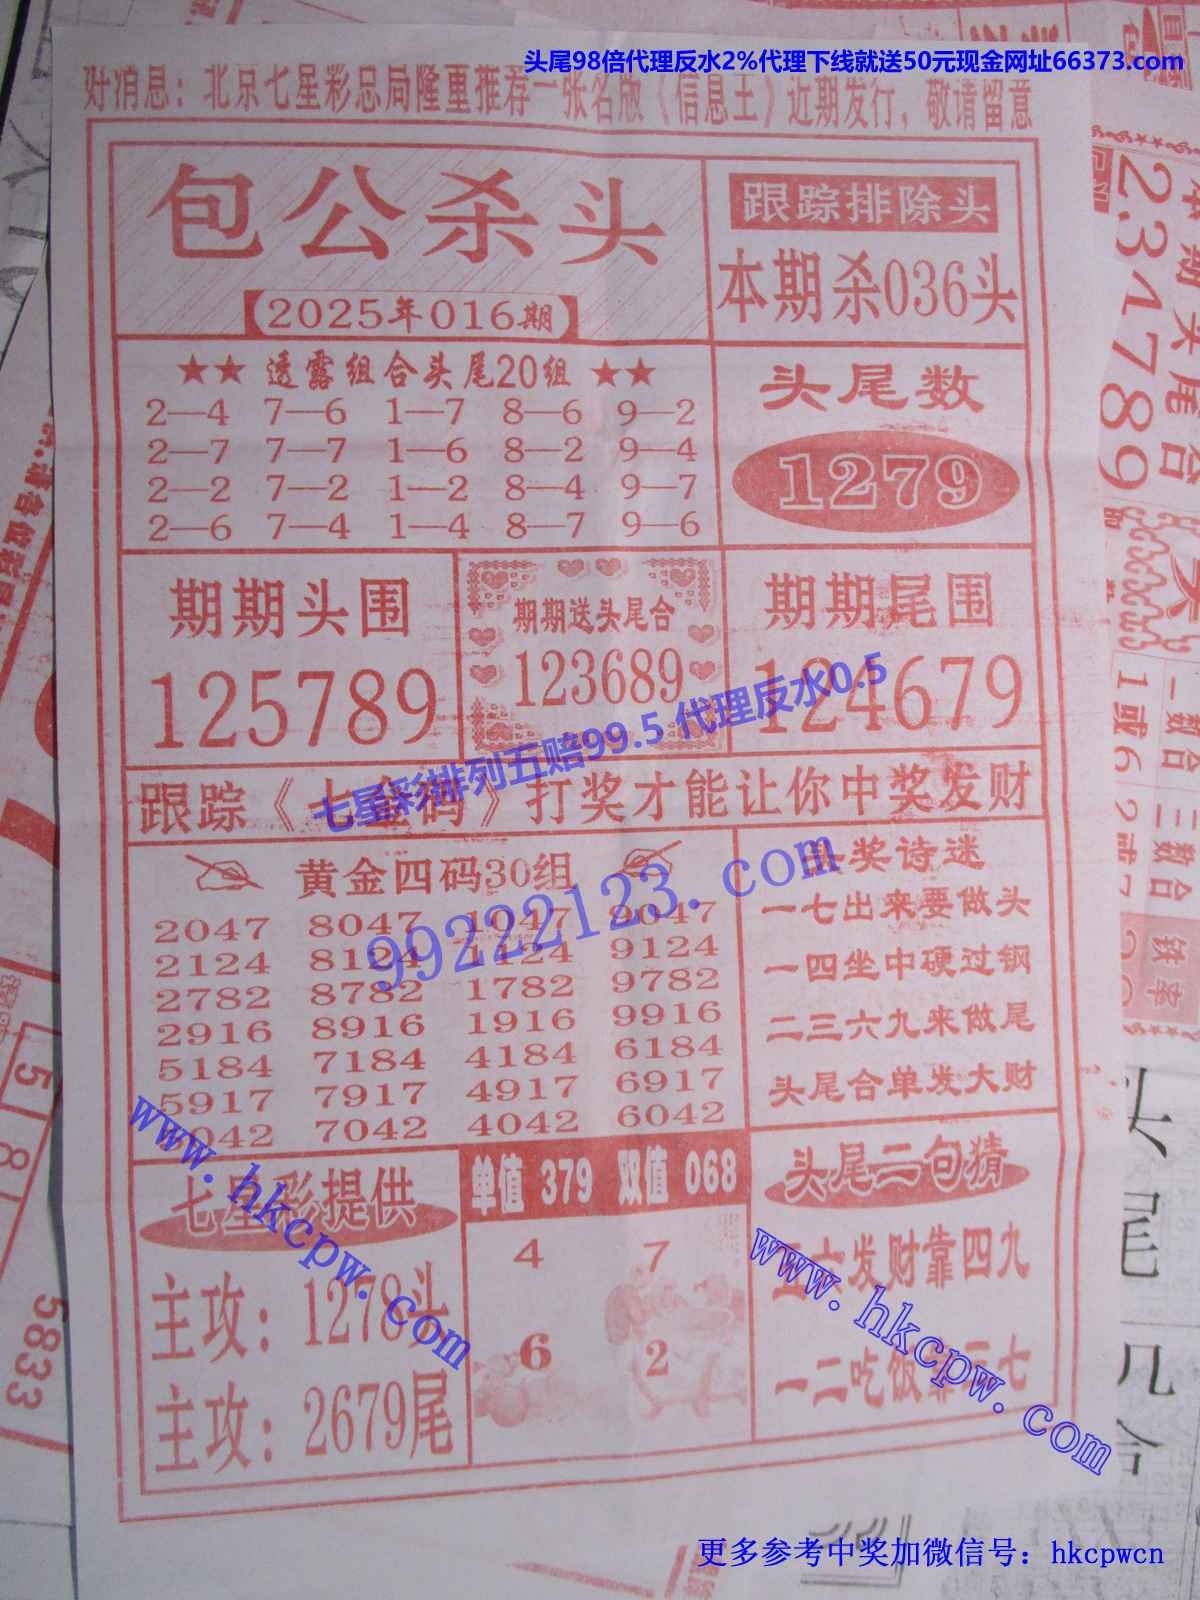 头尾98倍代理反水2%代理下线就送50元现金网址66373.com
好消息：北京七星彩总局隆重推荐一张名版《信息王》近期发行，敬请留意
包公杀头
2025年016期
跟踪排除头
本期杀036头
★★ 透露组合头尾20组 ★★
2—4 7—6 1—7 8—6 9—2
2—7 7—7 1—6 8—2 9—4
2—2 7—2 1—2 8—4 9—7
2—6 7—4 1—4 8—7 9—6
头尾数
1279
期期头围
125789
期期送头尾合
123689
期期尾围
124679
七星彩排列五赔99.5 代理反水0.5
跟踪《七星码》打奖才能让你中奖发财
黄金四码30组
2047 8047 1047 9047
2124 8124 1124 9124
2782 8782 1782 9782
2916 8916 1916 9916
5184 7184 4184 6184
5917 7917 4917 6917
5042 7042 4042 6042
99222123.com
头奖诗迷
一七出来要做头
一四坐中硬过钢
二三六九来做尾
头尾合单发大财
七星彩提供
主攻：1278头
主攻：2679尾
www.hkcpw.com
单值 379 双值 068
4 7
6 2
头尾二句猜
五六发财靠四九
一二吃饭靠三七
www.hkcpw.com
234789
本期头尾合
二数合
1或6
2或7
三数合
5833
头尾几合
更多参考中奖加微信号：hkcpwcn